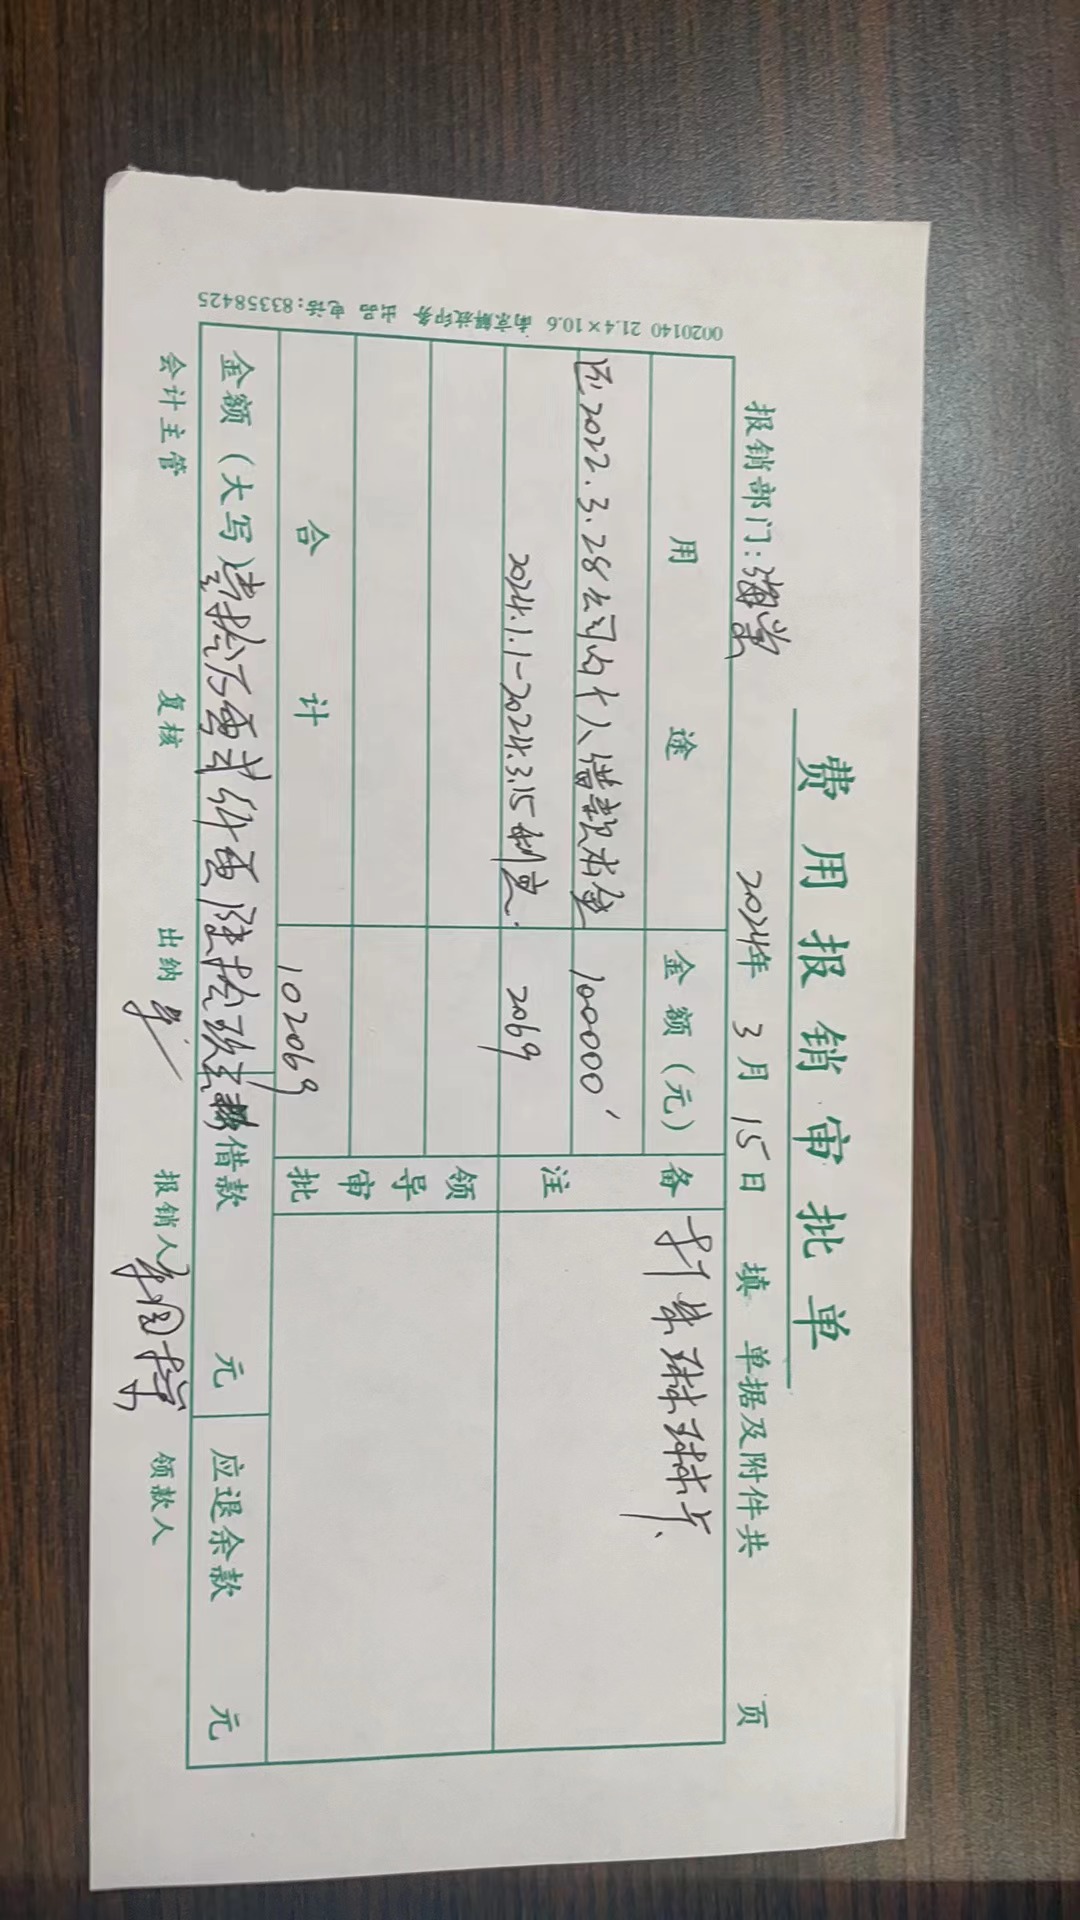 费用报销审批单
报销部门：海棠 2024年 3月 15日 填 单据及附件共 页
用 途 金 额（元） 备 注
还2022.3.28公司内个人借款本金 100000 打柴琳琳卡
2024.1.1-2024.3.15利息. 2069
领导审批
合 计 102069
金额（大写）壹拾万零贰仟零陆拾玖元整 借款 元 应退余款 元
会计主管 复核 出纳 报销人 领款人
0020140 21.4×10.6 南京解放印务 出品 电话：83358425